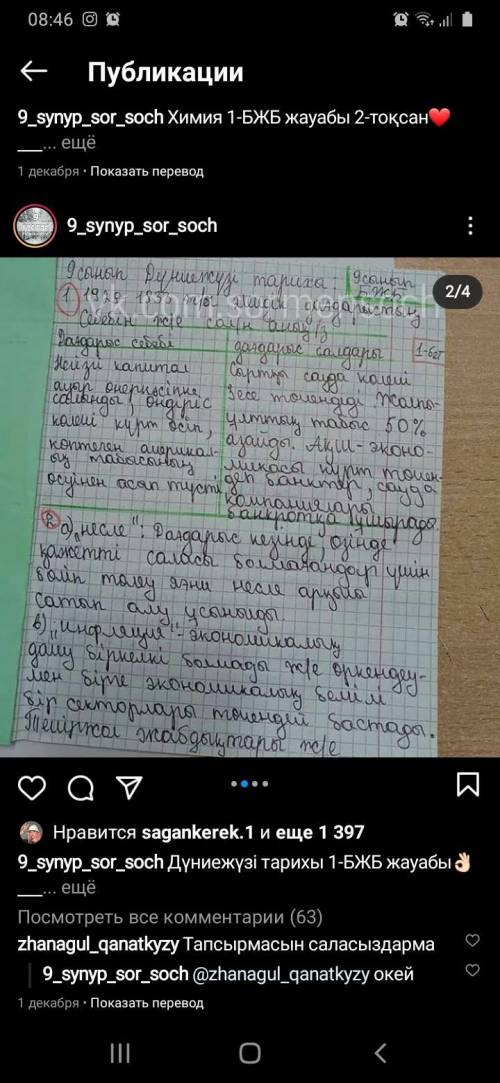 08:46
Публикации
9_synyp_sor_soch Химия 1-БЖБ жауабы 2-тоқсан❤️
___... ещё
1 декабря • Показать перевод
9_synyp_sor_soch
2/4
9сынып Дүниежүзі тарихы 9сынып
1 1929-1933 ж/ы дағдарыстың
Себебін ж/е салын
Дағдарыс себебі дағдарыс салдары 1-бет
Негізі капитал
ауыр өнеркәсіпке
салынды, өндіріс
көлемі күрт өсіп,
көптеген америкал-
ық табысының
өсуінен асып түсті
Сыртқы сауда көлемі
3 есе төмендеді. Жалпы-
ұлттық табыс 50%
азайды. Ақш-эконо-
микасы күрт төмен-
деп банктер, сауда
компаниялары
банкротқа ұшырады.
2 а) „несие": Дағдарыс кезінде, өзінде
қажетті саласы болмағандар үшін
бөліп төлеу яғни несие арқылы
сатып алу ұсынылды.
в) „инфляция" - экономикалық
даму біркелкі болмады ж/е өркендеу-
мен бірге экономикалық бөлім
бір секторлары төмендей бастады.
Теміржол жабдықтары ж/е
Нравится sagankerek.1 и еще 1 397
9_synyp_sor_soch Дүниежүзі тарихы 1-БЖБ жауабы👌🏻
___... ещё
Посмотреть все комментарии (63)
zhanagul_qanatkyzy Тапсырмасын саласыздарма
9_synyp_sor_soch @zhanagul_qanatkyzy окей
1 декабря • Показать перевод